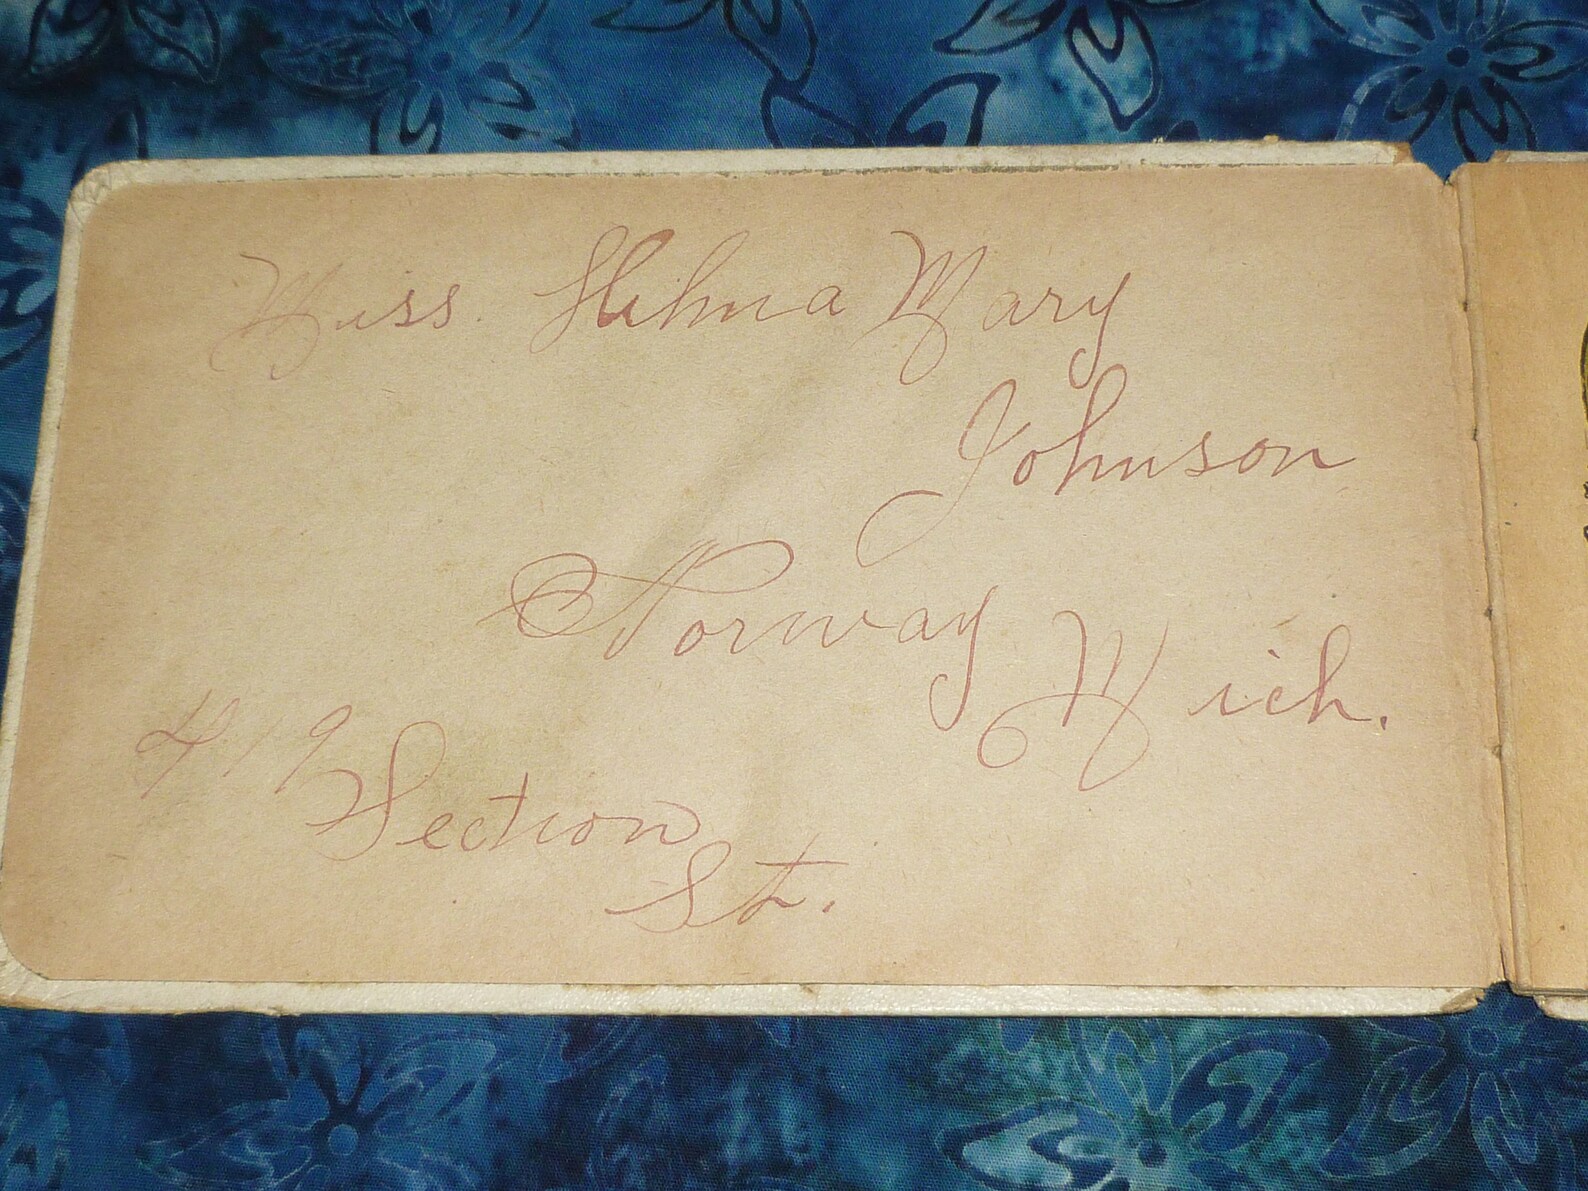 Miss. Hilma Mary
Johnson
Norway Mich.
419
Section
St.